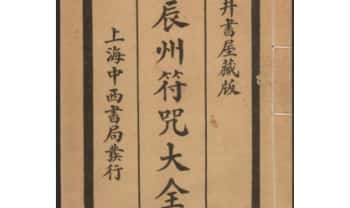 井書屋藏版
辰州符咒大全
上海中西書局發行